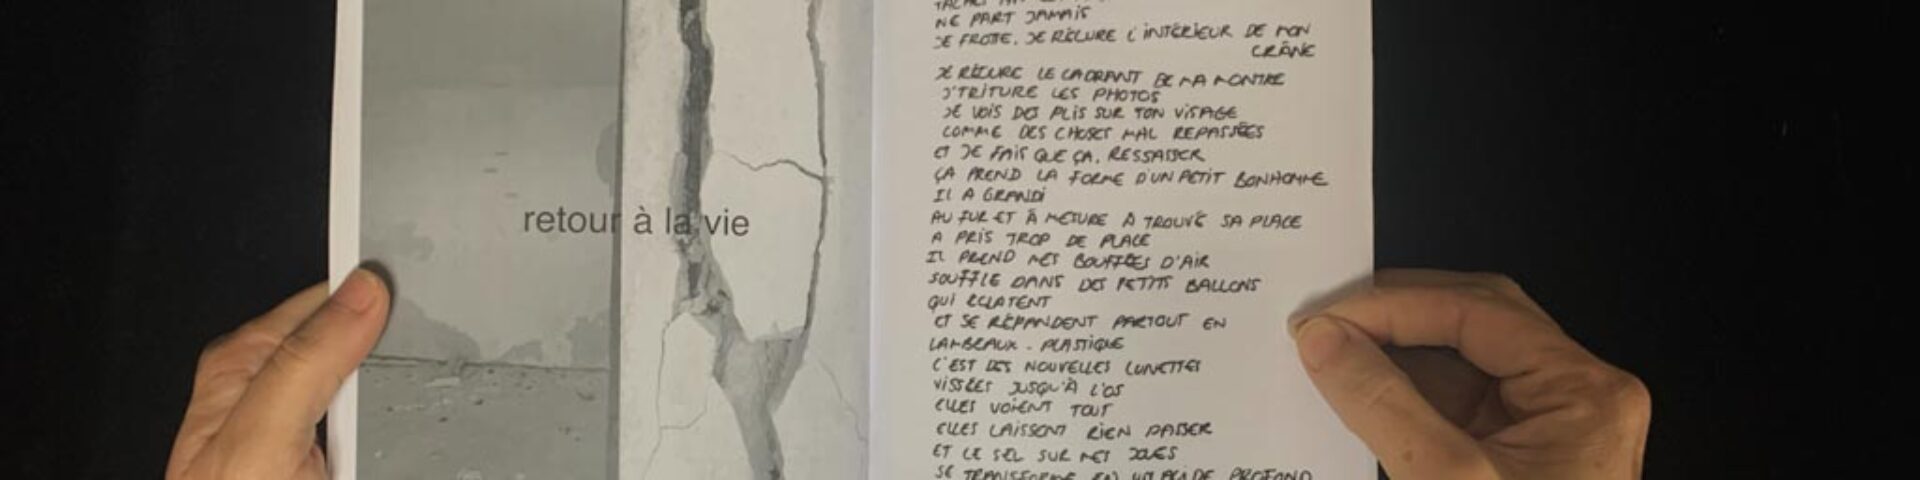 retour à la vie
NE PART JAMAIS
JE FROTTE. JE RÉCURE L'INTÉRIEUR DE MON
CRÂNE
JE RÉCURE LE CADRANT DE MA MONTRE
J'TRITURE LES PHOTOS
JE VOIS DES PLIS SUR TON VISAGE
COMME DES CHOSES MAL REPASSÉES
ET JE FAIS QUE ÇA. RESSASSER
ÇA PREND LA FORME D'UN PETIT BONHOMME
IL A GRANDI
AU FUR ET À MESURE A TROUVÉ SA PLACE
A PRIS TROP DE PLACE
IL PREND MES BOUFFÉES D'AIR
SOUFFLE DANS DES PETITS BALLONS
QUI ECLATENT
ET SE RÉPANDENT PARTOUT EN
LAMBEAUX - PLASTIQUE
C'EST DES NOUVELLES LUNETTES
VISSÉES JUSQU'À L'OS
ELLES VOIENT TOUT
ELLES LAISSENT RIEN PASSER
ET LE SEL SUR MES JOUES
SE TRANSFORME EN UN PROFOND